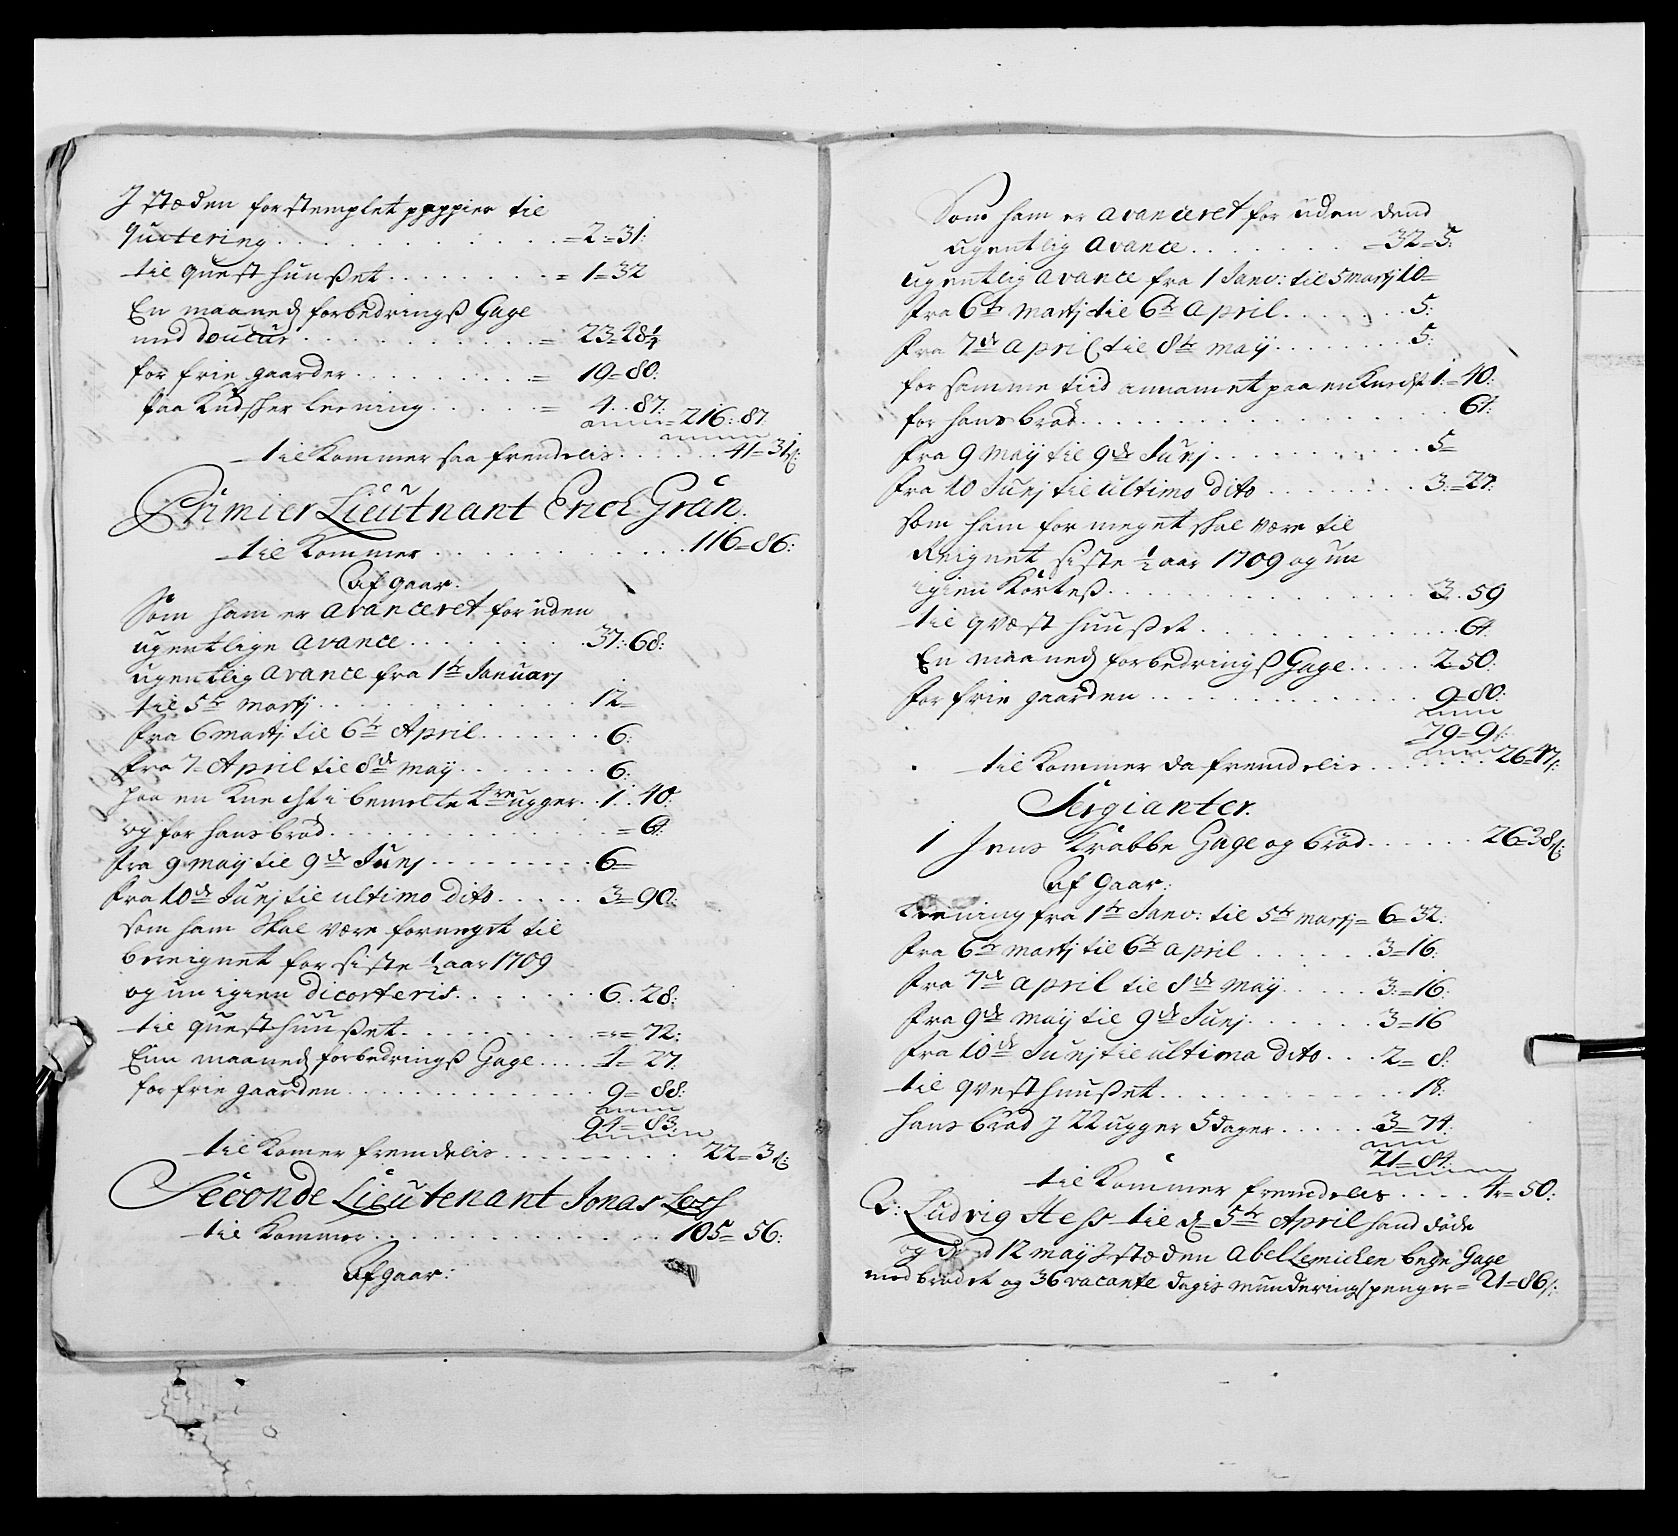 J støeden for stemplet pappier til
Quitering . . . . . . . . . . =2=31:
til questhuußet . . . . . . . = 1=32
En maaneds forbedringß Gage
med Douceur . . . . . . . . = 23=28½
for frie gaarder . . . . . . . = 19=80:
paa Kudsker leening . . . . . = 4..87: =216:87
til Kommer saa fremdelis . . . . . . 41=31ß:
Primier Lieutnant Erich Grån.
til Kommer . . . . . . . . . . 116=86:
Afgaar:
Som ham er avanceret foruden
ugentlige avance . . . . . . . 37:68:
ugentlig avance fra 1te Januarj
til 5te Martj . . . . . . . . . 12=
fra 6 Martj til 6te April . . . . . . 6:
fra 7= April til 8de Maij . . . . . . 6:
paa en Knecht i bemelte ugger . . 1..40:
og for hans brød . . . . . . . . . =64:
fra 9 Maij til 9de Junj . . . . . . 6=
fra 10de Junj til ultimo dito . . . . . 3=90:
som ham skal være formeget til
bereignet for siste ½ aar 1709
og nu igien dicorteris . . . . . . 6..28:
til questhuußet . . . . . . . . =,=72:
Een maaneds forbedringß Gage . . . . 1=27:
for frie gaarden . . . . . . . . . 9=88:
94=83:
til Komer fremdelis . . . . . . . . 22=3ß:
Seconde Lieutenant Jonas
til Kommer . . . . . . . . . . 105=56:
Afgaar:
Som ham er avanceret foruden dend
ugentlig avance . . . . . . . =32=5:
ugentlig avance fra 1 Janv: til 5 Martj 10=
fra 6te Martj til 6te April . . . . . . 5:
fra 7de April til 8te Maij . . . . . . . 5:
for samme tiid annamet paa en Knecht 1:=40:
for hans brød . . . . . . . . . . . . 64:
fra 9 Maij til 9de Junj . . . . . . . . 5=
fra 10 Junj til ultimo dito . . . . . . 3:=27:
som ham for meget skal være til
Reignet siste ½ aar 1709 og nu
igien Kortes . . . . . . . . . . . . 3.59
til qvæst huußet . . . . . . . . . . 64.
En maaneds forbedringß Gage . . . . . 2=50:
for frie gaarden . . . . . . . . . . 9=80:
79=9ß:
til Kommer da fremdelis . . . . . . . 26=47ß:
Sergianter.
1 Jens Krabbe Gage og brød . . . . . . 26=38ß:
Af Gaar:
Leening fra 1te Janv: til 5te Martj= 6=32:
fra 6te Martj til 6te April . . . . . . 3=16:
fra 7de April til 8de Maij . . . . . 3:=16:
fra 9de Maij til 9de Junj . . . . . . 3=16
fra 10de Junj til ultima dito . . . 2=8:
til qvesthuußet . . . . . . . . . . . 18:
hans brød J 22 ugger 5 dager . . . . . 3=74:
21=84:
til Kommer fremdelis . . . . 4=50:
2: Ludvig Hess til d= 5te April hand døde
og 12 Maij J støeden Abel begge Gage
med brødet og 36 vacante dagis munderingspenger= 21=86ß: